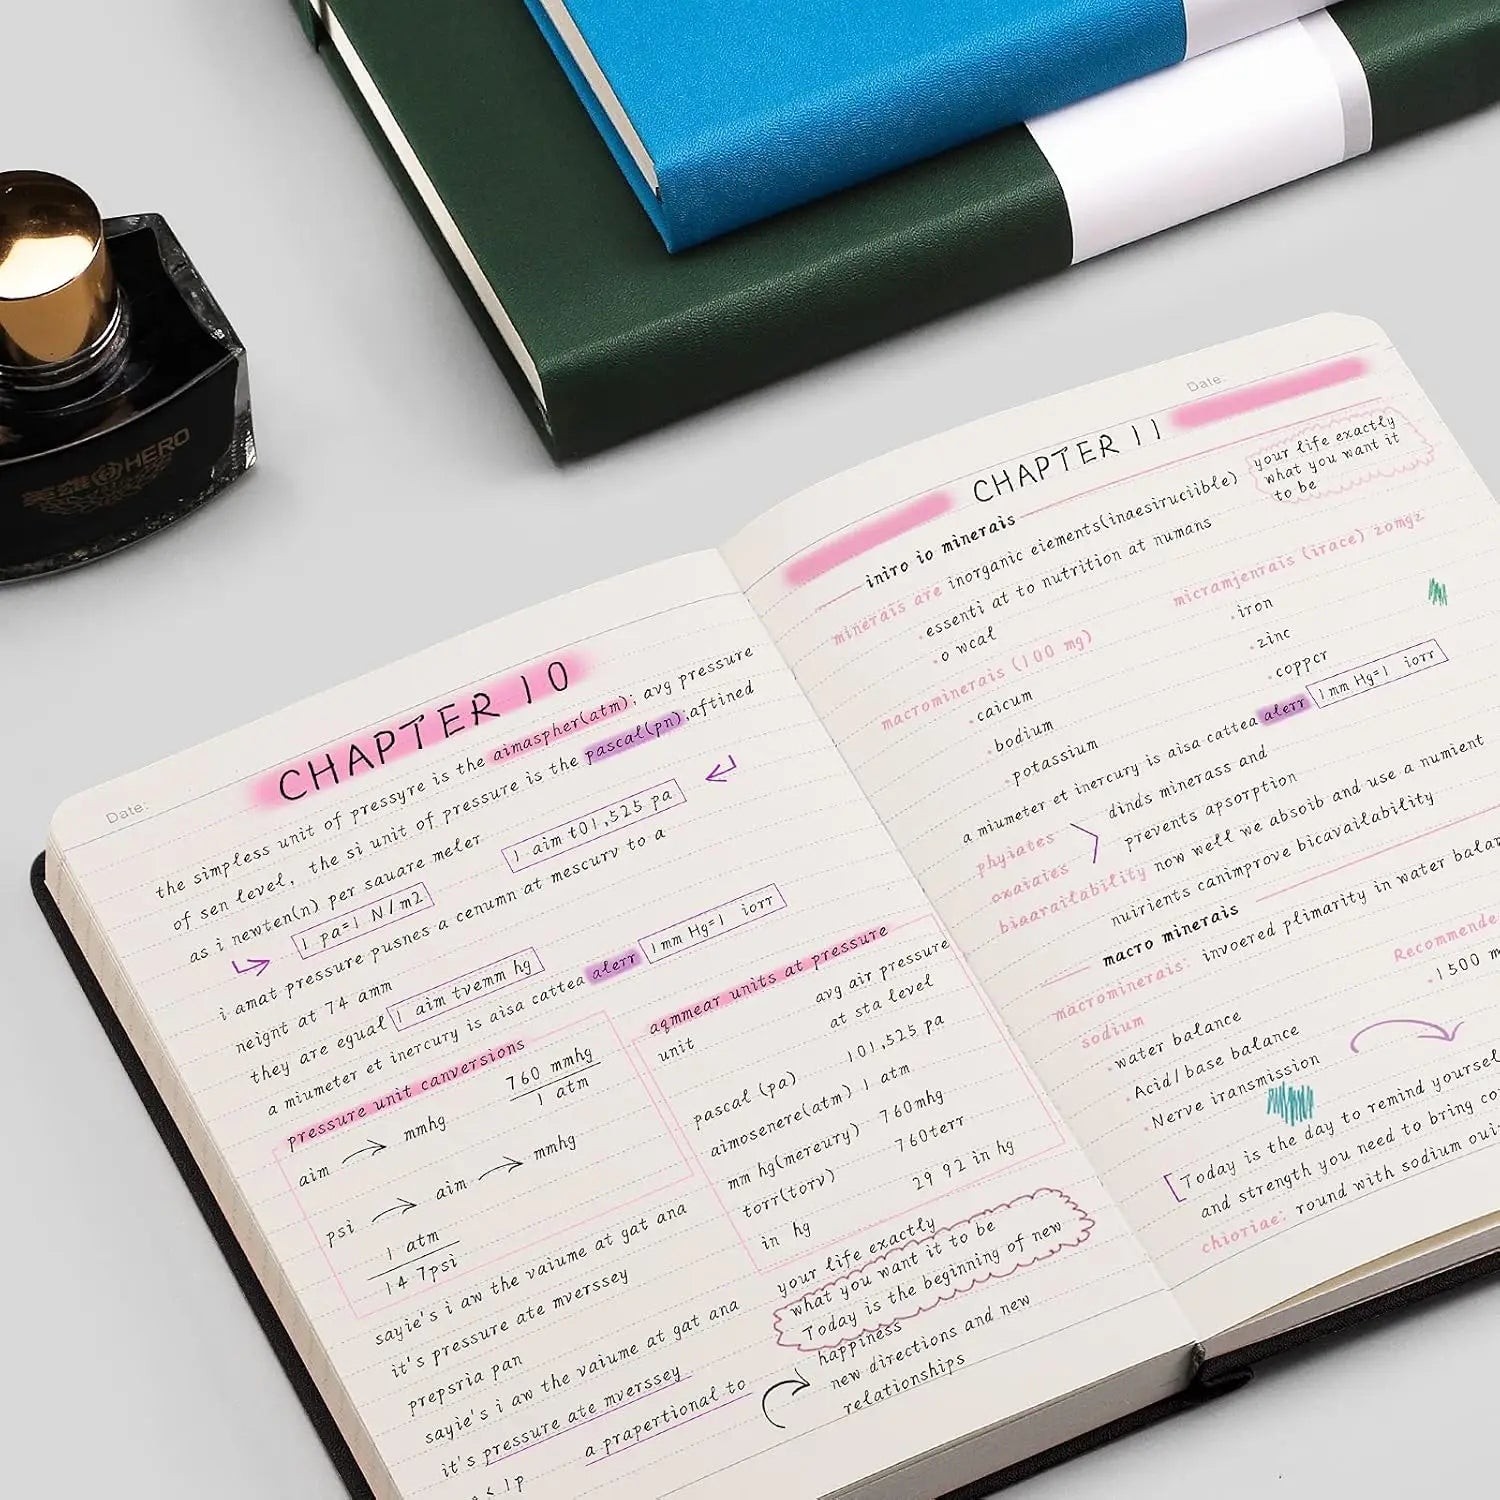 英雄 HERO
Date:
CHAPTER 10
the simpless unit of pressyre is the aimaspher(atm); avg pressure
of sen level, the si unit of pressure is the pascal(pn);aftined
as i newten(n) per sauare meler
1 aim t01,525 pa
1 pa=1 N/m2
i amat pressure pusnes a cenumn at mescurv to a
neignt at 74 amm
they are egual 1 aim tvemm hg
a miumeter et inercury is aisa cattea aterr 1mm Hg=1 iorr
pressure unit canversions
760 mmhg
1 atm
aim mmhg
psi aim mmhg
1 atm
14 7psi
aqmmear units at pressure
unit avg air pressure
at sta level
pascal (pa) 101,525 pa
aimosenere(atm) 1 atm
mm hg(mereury) 760mhg
torr(torv) 760terr
in hg 29 92 in hg
sayie's i aw the vaiume at gat ana
it's pressure ate mverssey
prepsria pan
sayie's i aw the vaiume at gat ana
it's pressure ate mverssey
a prapertional to
< 1p
your life exactly
what you want it to be
Today is the beginning of new
happiness
new directions and new
relationships
Date:
CHAPTER 11
iniro io minerais
your life exactly
what you want it
to be
minerais are inorganic eiements(inaesiruciible)
essenti at to nutrition at numans
o wcal
macrominerais (100 mg)
caicum
bodium
potassium
micramjenrais (irace) zomgz
iron
zinc
coppcr
a miumeter et inercury is aisa cattea aterr 1mm Hg=1 iorr
phyiates
oxaiaies
dinds minerass and
prevents apsorption
biaarailability now well we absoib and use a numient
nuirients canimprove bicavailability
macro minerais
macrominerais: invoered plimarity in water balan
sodium
Recommende
1500 m
water balance
Acid/base balance
Nerve iransmission
Today is the day to remind yoursel
and strength you need to bring co
chioriae: round with sodium oui